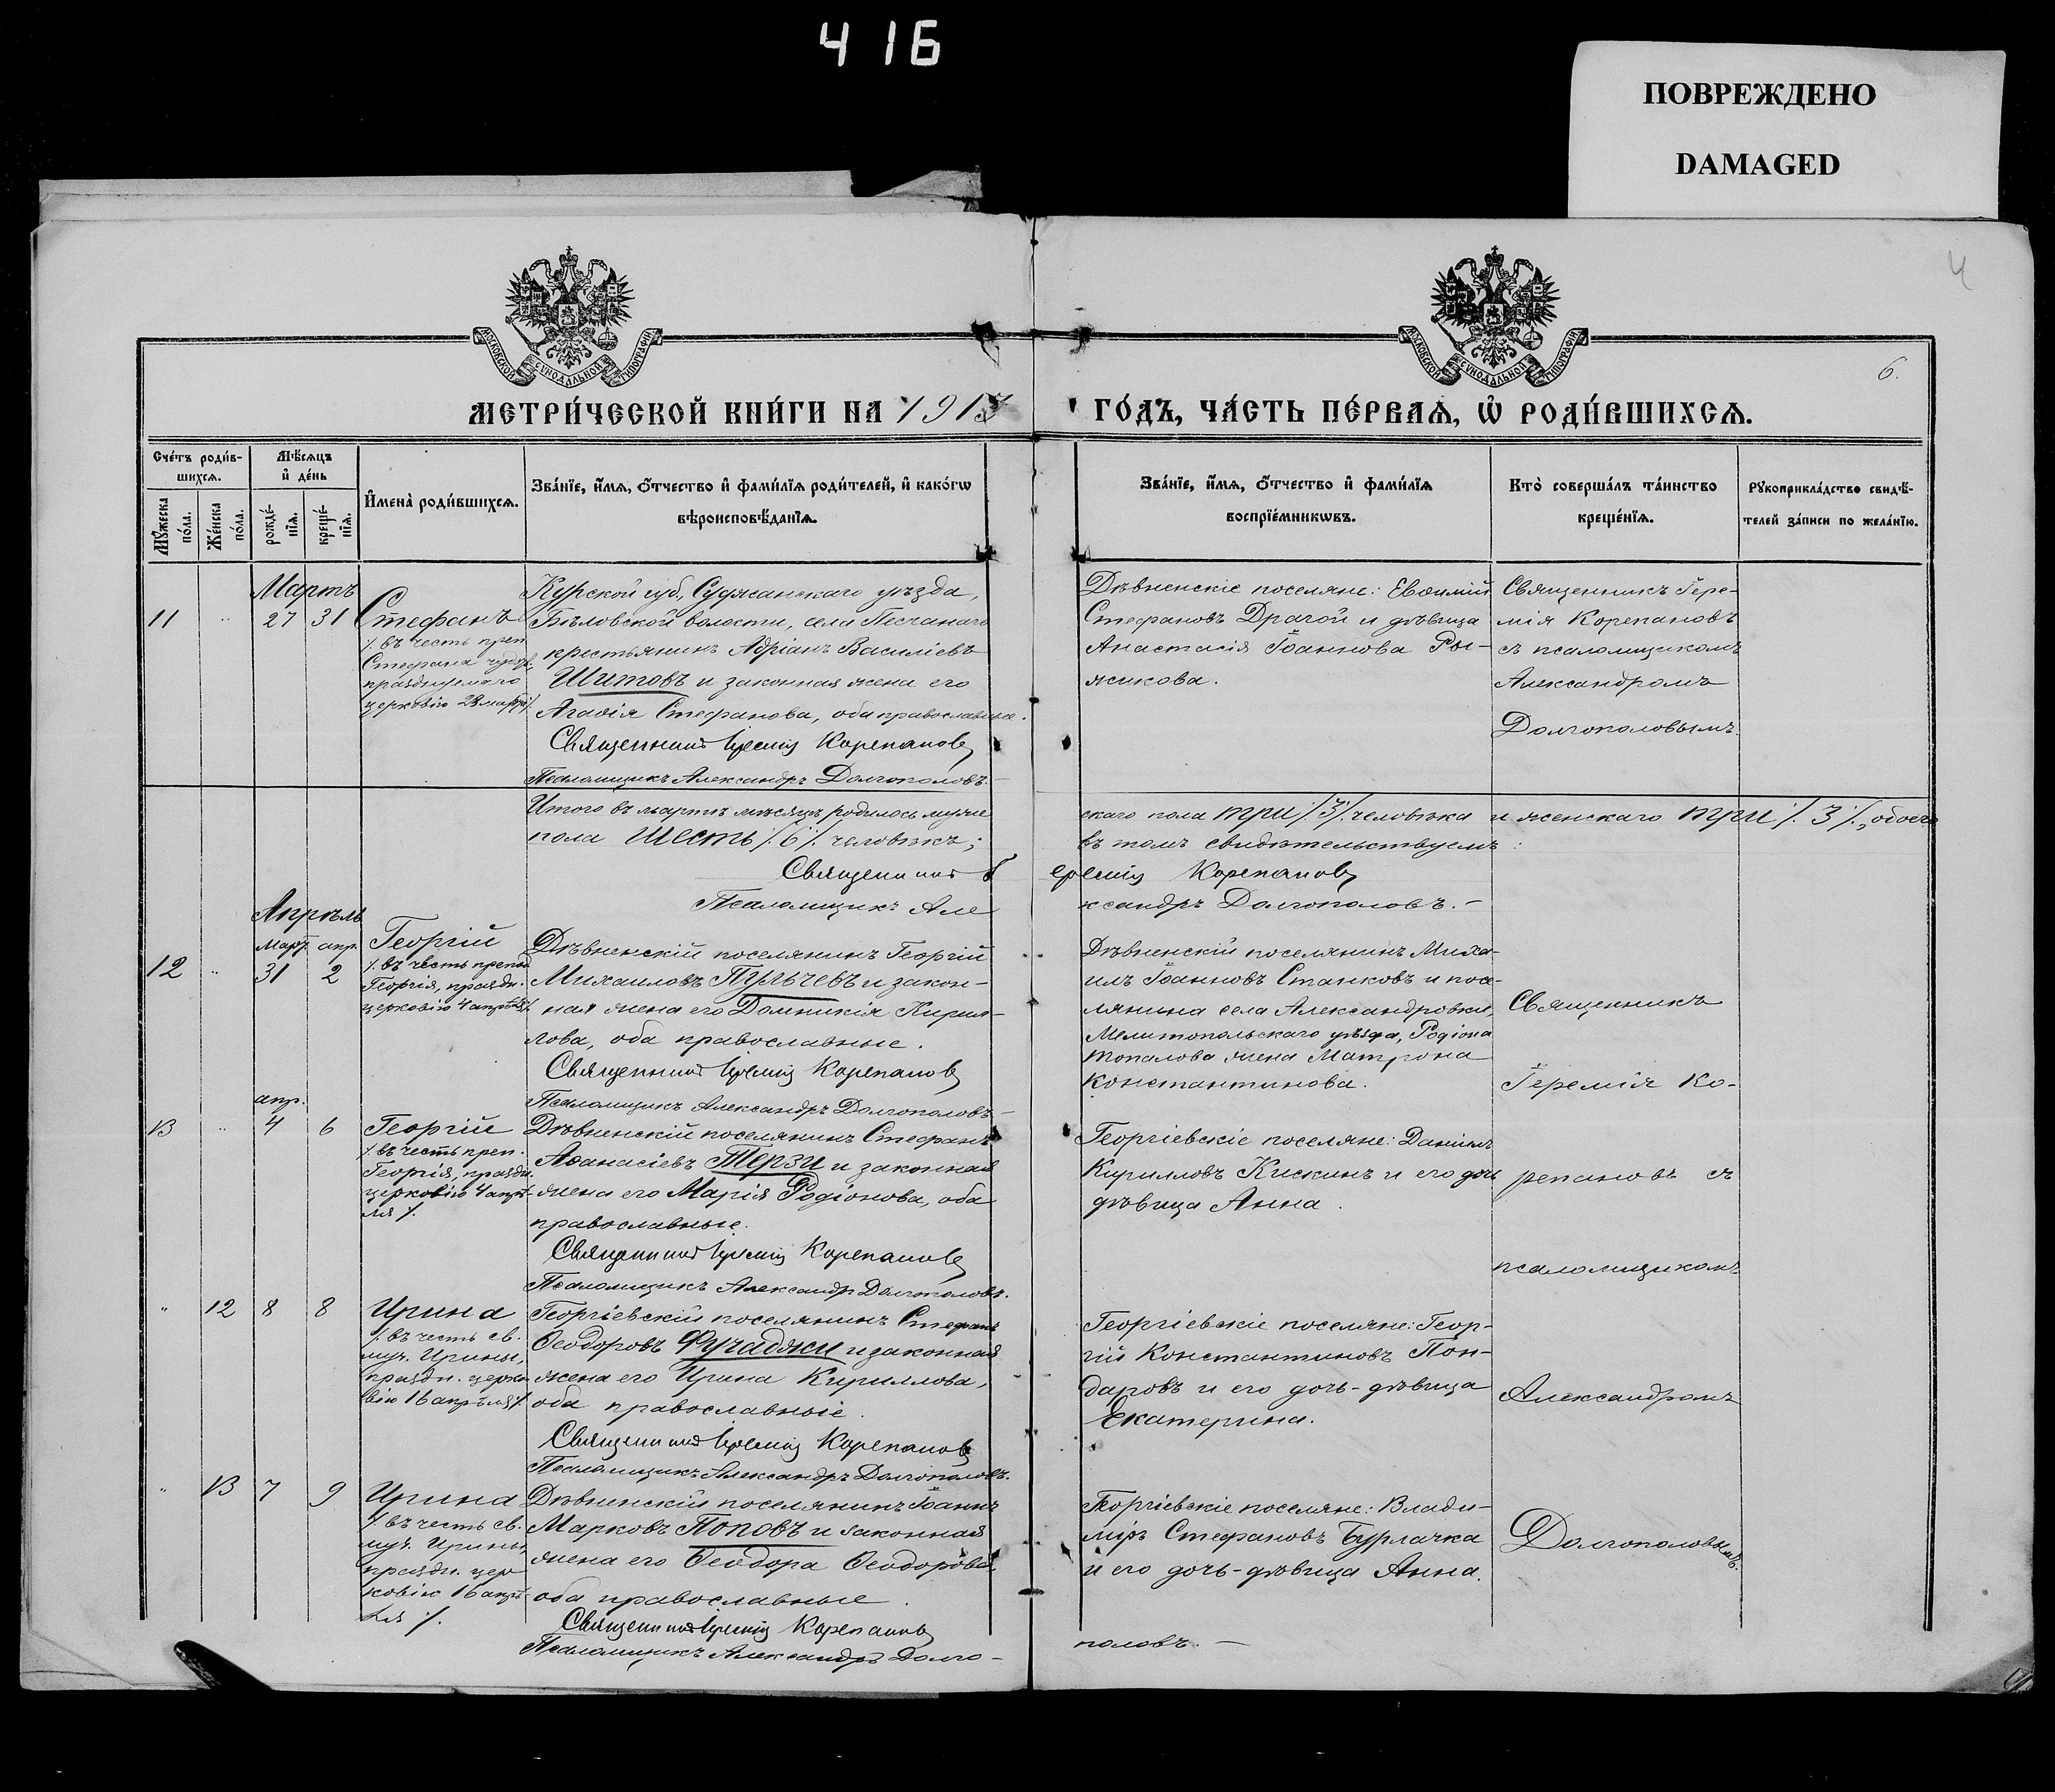 416
ПОВРЕЖДЕНО
DAMAGED
4
6.
МОСКОВСКОЙ СѴНОДАЛЬНОЙ ТИПОГРАФІИ
МОСКОВСКОЙ СѴНОДАЛЬНОЙ ТИПОГРАФІИ
МЕТРИ́ЧЕСКОЙ КНИ́ГИ НА 1913 ГО́ДЪ, ЧА́СТЬ ПЕ́РВАѦ, Ѿ РОДИ́ВШИХСѦ.
Сче́тъ роди́в-
шихсѧ.
Мѣ́сѧцъ
и҆ де́нь
Мꙋ́жеска по́ла.
Же́нска по́ла.
рожде́-нїѧ.
креще́-нїѧ.
И҆мена̀ роди́вшихсѧ.
Зва́нїе, и҆́мѧ, ѻ҆́тчество и҆ фами́лїѧ роди́телей, и҆ како́гѡ
вѣроисповѣ́данїѧ.
Зва́нїе, и҆́мѧ, ѻ҆́тчество и҆ фами́лїѧ
воспрїе́мникѡвъ.
Кто̀ соверша́лъ та́инство
креще́нїѧ.
Рꙋкоприкла́дство свидѣ́-
телей за́писи по жела́нїю.
Мартъ
11 " 27 31 Стефанъ
/. въ честь преп.
Стефана чудотв.
празднуемаго
церковію 28 марта ./
Курской губ., Суджанскаго уѣзда,
Бѣловской волости, села Песчанаго
крестьянинъ Адріанъ Василіевъ
Шитовъ и законная жена его
Агафія Стефанова, оба православные.
Священникъ Іеремія Корепановъ
Псаломщикъ Александръ Долгополовъ.
Дѣвненскіе поселяне: Евѳимій
Стефановъ Драгой и дѣвица
Анастасія Іоаннова Ры-
жикова.
Священникъ Іере-
мія Корепановъ
съ псаломщикомъ
Александромъ
Долгополовымъ.
Итого въ мартѣ мѣсяцѣ родилось муже скаго пола три /.3/. человѣка и женскаго три /.3/., обоего
пола шесть /.6/. человѣкъ; въ томъ свидѣтельствуемъ:
Священникъ Іеремія Корепановъ
Псаломщикъ Александръ Долгополовъ.
Апрѣль
март. апр.
12 " 31 2 Георгій
/. въ честь препод.
Георгія, праздн.
церковію 4 апрѣля ./
Дѣвненскій поселянинъ Георгій
Михаиловъ Пульчевъ и закон-
ная жена его Домникія Кирил-
лова, оба православные.
Священникъ Іеремія Корепановъ
Псаломщикъ Александръ Долгополовъ.
Дѣвненскій поселянинъ Миха-
илъ Іоанновъ Станковъ и посе-
лянина села Александровки,
Мелитопольскаго уѣзда, Родіона
Топалова жена Матрона
Константинова.
апр.
13 " 4 6 Георгій
/. въ честь преп.
Георгія, праздн.
церковію 4 апрѣ-
ля /.
Дѣвненскій поселянинъ Стефанъ
Аѳанасіевъ Терзи и законная
жена его Марія Родіонова, оба
православные.
Священникъ Іеремія Корепановъ
Псаломщикъ Александръ Долгополовъ.
Георгіевскіе поселяне: Даніилъ
Кирилловъ Кискинъ и его дочь
дѣвица Анна.
" 12 8 8 Ирина
/. въ честь св.
муч. Ирины,
праздн. церко
вію 16 апрѣля /.
Георгіевскій поселянинъ Стефанъ
Ѳеодоровъ Фучаджи и законная
жена его Ирина Кириллова,
оба православные.
Священникъ Іеремія Корепановъ
Псаломщикъ Александръ Долгополовъ.
Георгіевскіе поселяне: Геор-
гій Константиновъ Пон-
даровъ и его дочь-дѣвица
Екатерина.
" 13 7 9 Ирина
/. въ честь св.
муч. Ирины,
праздн. цер
ковію 16 апрѣ-
ля /.
Дѣвненскій поселянинъ Іоаннъ
Марковъ Поповъ и законная
жена его Ѳеодора Ѳеодорова,
оба православные.
Священникъ Іеремія Корепановъ
Псаломщикъ Александръ Долго-
половъ.
Георгіевскіе поселяне: Влади-
міръ Стефановъ Бурлачка
и его дочь-дѣвица Анна.
Священникъ
Іеремія Ко-
репановъ съ
псаломщикомъ
Александромъ
Долгополовымъ.